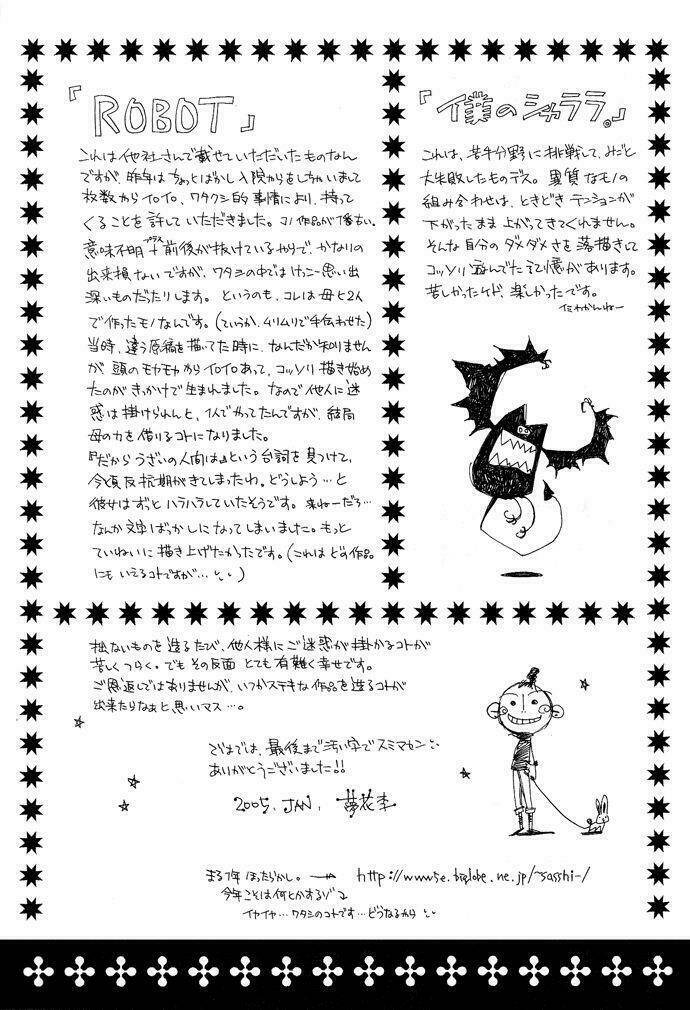 『ROBOT』
これは他社さんで載せていただいたものなん
ですが、昨年はちょっとばかし入院からをしちゃいまして
枚数からイロイロ、ワタクシ的事情により、持って
くることを許していただきました。コノ作品が1番古い。
意味不明プラス前後が抜けているわりで、かなりの
出来損ないですが、ワタシの中ではけっこー思い出
深いものだったりします。というのも、コレは母と2人
で作ったモノなんです。(ていうか、ムリムリで手伝わせた)
当時、違う原稿を描いてた時に、なんだか知りません
が頭のモヤモヤからイロイロあって、コッソリ描き始め
たのがきっかけで生まれました。なので他人に迷
惑は掛けられんと、1人でやってたんですが、結局
母の力を借りるコトになりました。
『だからうざいの人間は』という台詞を見つけて、
今頃反抗期がきてしまったわ。どうしよう…と
彼女はずっとハラハラしていたそうです。来ねーだろ…
なんか文字ばっかしになってしまいました。もっと
ていねいに描き上げたかったです。(これはどの作品
にもいえるコトですが…)
『僕のシャララ。』
これは、若干分野に挑戦して、みごと
大失敗したものデス。異質なモノの
組み合わせは、ときどきテンションが
下がったまま上がってきてくれません。
そんな自分のダメダメさを落描きして
コッソリ遊んでた記憶があります。
苦しかったケド、楽しかったです。
イミわかんねー
拙ないものを造るたび、他人様にご迷惑が掛かるコトが
苦しくつらく。でもその反面とても有難く幸せです。
ご恩返しではありませんが、いつかステキな作品を造るコトが
出来たらなぁと思いマス…。
ではでは、最後まで汚い字でスミマセン
ありがとうございました!!
2005. JAN. 夢花李
まる1年ほったらかし。→ http://www5e.biglobe.ne.jp/~sasshi-/
今年こそは何とかするゾ
イヤイヤ…ワタシのコトです…どうなるやら